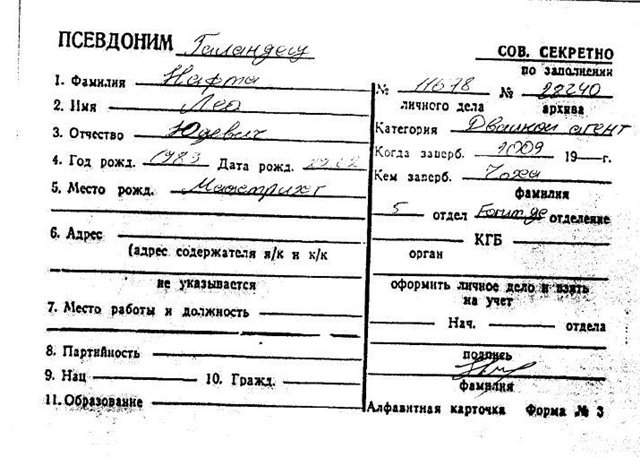 ПСЕВДОНИМ Галандец
СОВ. СЕКРЕТНО
по заполнении
1. Фамилия Нафта
2. Имя Лео
3. Отчество Юдевич
4. Год рожд. 1983 Дата рожд.
5. Место рожд. Маастрихт
6. Адрес
(адрес содержателя я/к и к/к
не указывается
7. Место работы и должность
8. Партийность
9. Нац 10. Гражд.
11. Образование
№ 11678 № 22240
личного дела архива
Категория Двойной агент
Когда завербл. 2009 19 г.
Кем заверб.
фамилия
5 отдел Forum.ge отделение
КГБ
орган
оформить личное дело и взять
на учет
Нач. отдела
подпись
фамилия
Алфавитная карточка Форма № 3